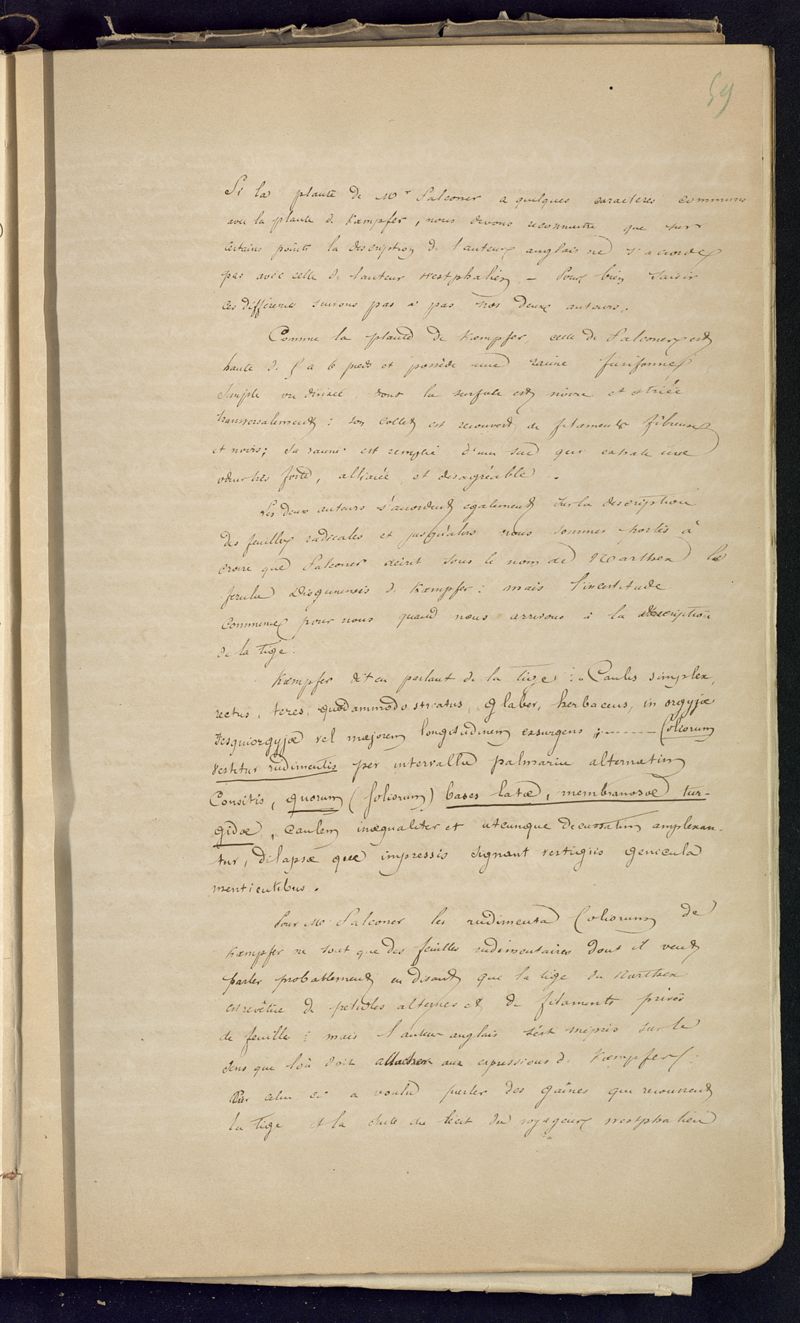 59
Si la plante de Mr Falconer a quelques caractères communs
avec la plante de Kæmpfer, nous devons reconnaitre que sur
certains points la description de l'auteur anglais ne s'accorde
pas avec celle de l'auteur westphalien. – Pour bien saisir
ces différence suivons pas à pas nos deux auteurs.
Comme la plante de Kæmpfer, celle de Falconer est
haute de 5 a 6 pieds et possède une racine fusiforme
simple ou divisée dont la surface est noire et striée
transversalement : son collet est recouvert de filaments fibreux
et noirs; sa racine est remplie d'un suc qui exhale une
odeur très forte, alliacée et desagréable.
Les deux auteurs s'accordent egalement sur la description
des feuilles radicales et jusqu'alors nous sommes portés à
croire que Falconer décrit sous le nom de Narthex le
ferula Disgunensis de Kæmpfer : mais l'incertitude
commence pour nous quand nous arrivons à la description
de la tige.
Kæmpfer dit en parlant de la tige : « Caulis simplex,
rectus, teres, quodammodo striatus, glaber, herbaceus, in orgyjæ
sesquiorgyjæ vel majorem longitudinem exsurgens ; ——— foliorum
vestitur rudimentis per intervalla palmaria alternatim
consitis, quorum (foliorum) bases latæ, membranosæ tur-
gidæ, caulem inæqualiter et utcunque decussatim amplexan-
tur, dilapsæ quæ impressis signant vestigiis genicula
mentientibus.
Pour Mr Falconer les rudimenta foliorum de
Kæmpfer ne sont que des feuilles rudimentaires dont il veut
parler probablement en disant que la tige du Narthex
est revêtue de petioles alternes et de filaments privés
de feuille : mais l'auteur anglais s'est mépris sur le
sens que l'on doit attacher aux expressions de Kæmpfer :
Car celui ci a voulu parler des gaînes qui recouvrent
la tige et la suite du récit du voyageur westphalien